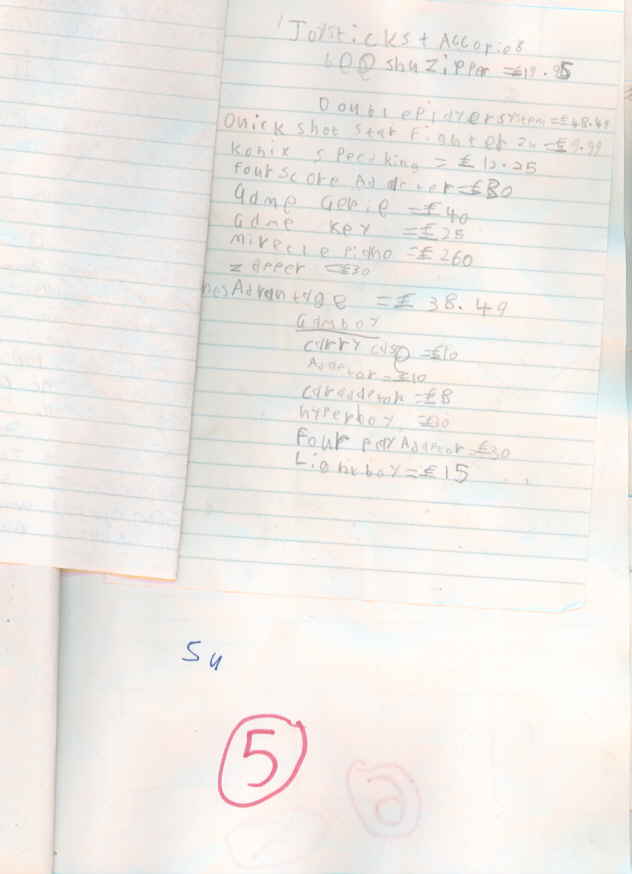 Joysticks + Accories
LQQ shuzipper = £19.95
Doubleplayersystem = £48.49
Quick shot Star Fighter 2u = £9.99
Konix speedking = £12.25
Four Score Adapter = £30
Game Genie = £40
Game Key = £25
Miracle Piano = £260
Zapper = £30
nes Advantage = £38.49
Gamboy
carry case = £10
Adaptor = £10
caradaptor = £8
hyperboy = £30
Four play Adaptor £30
Lightboy = £15
Su
5